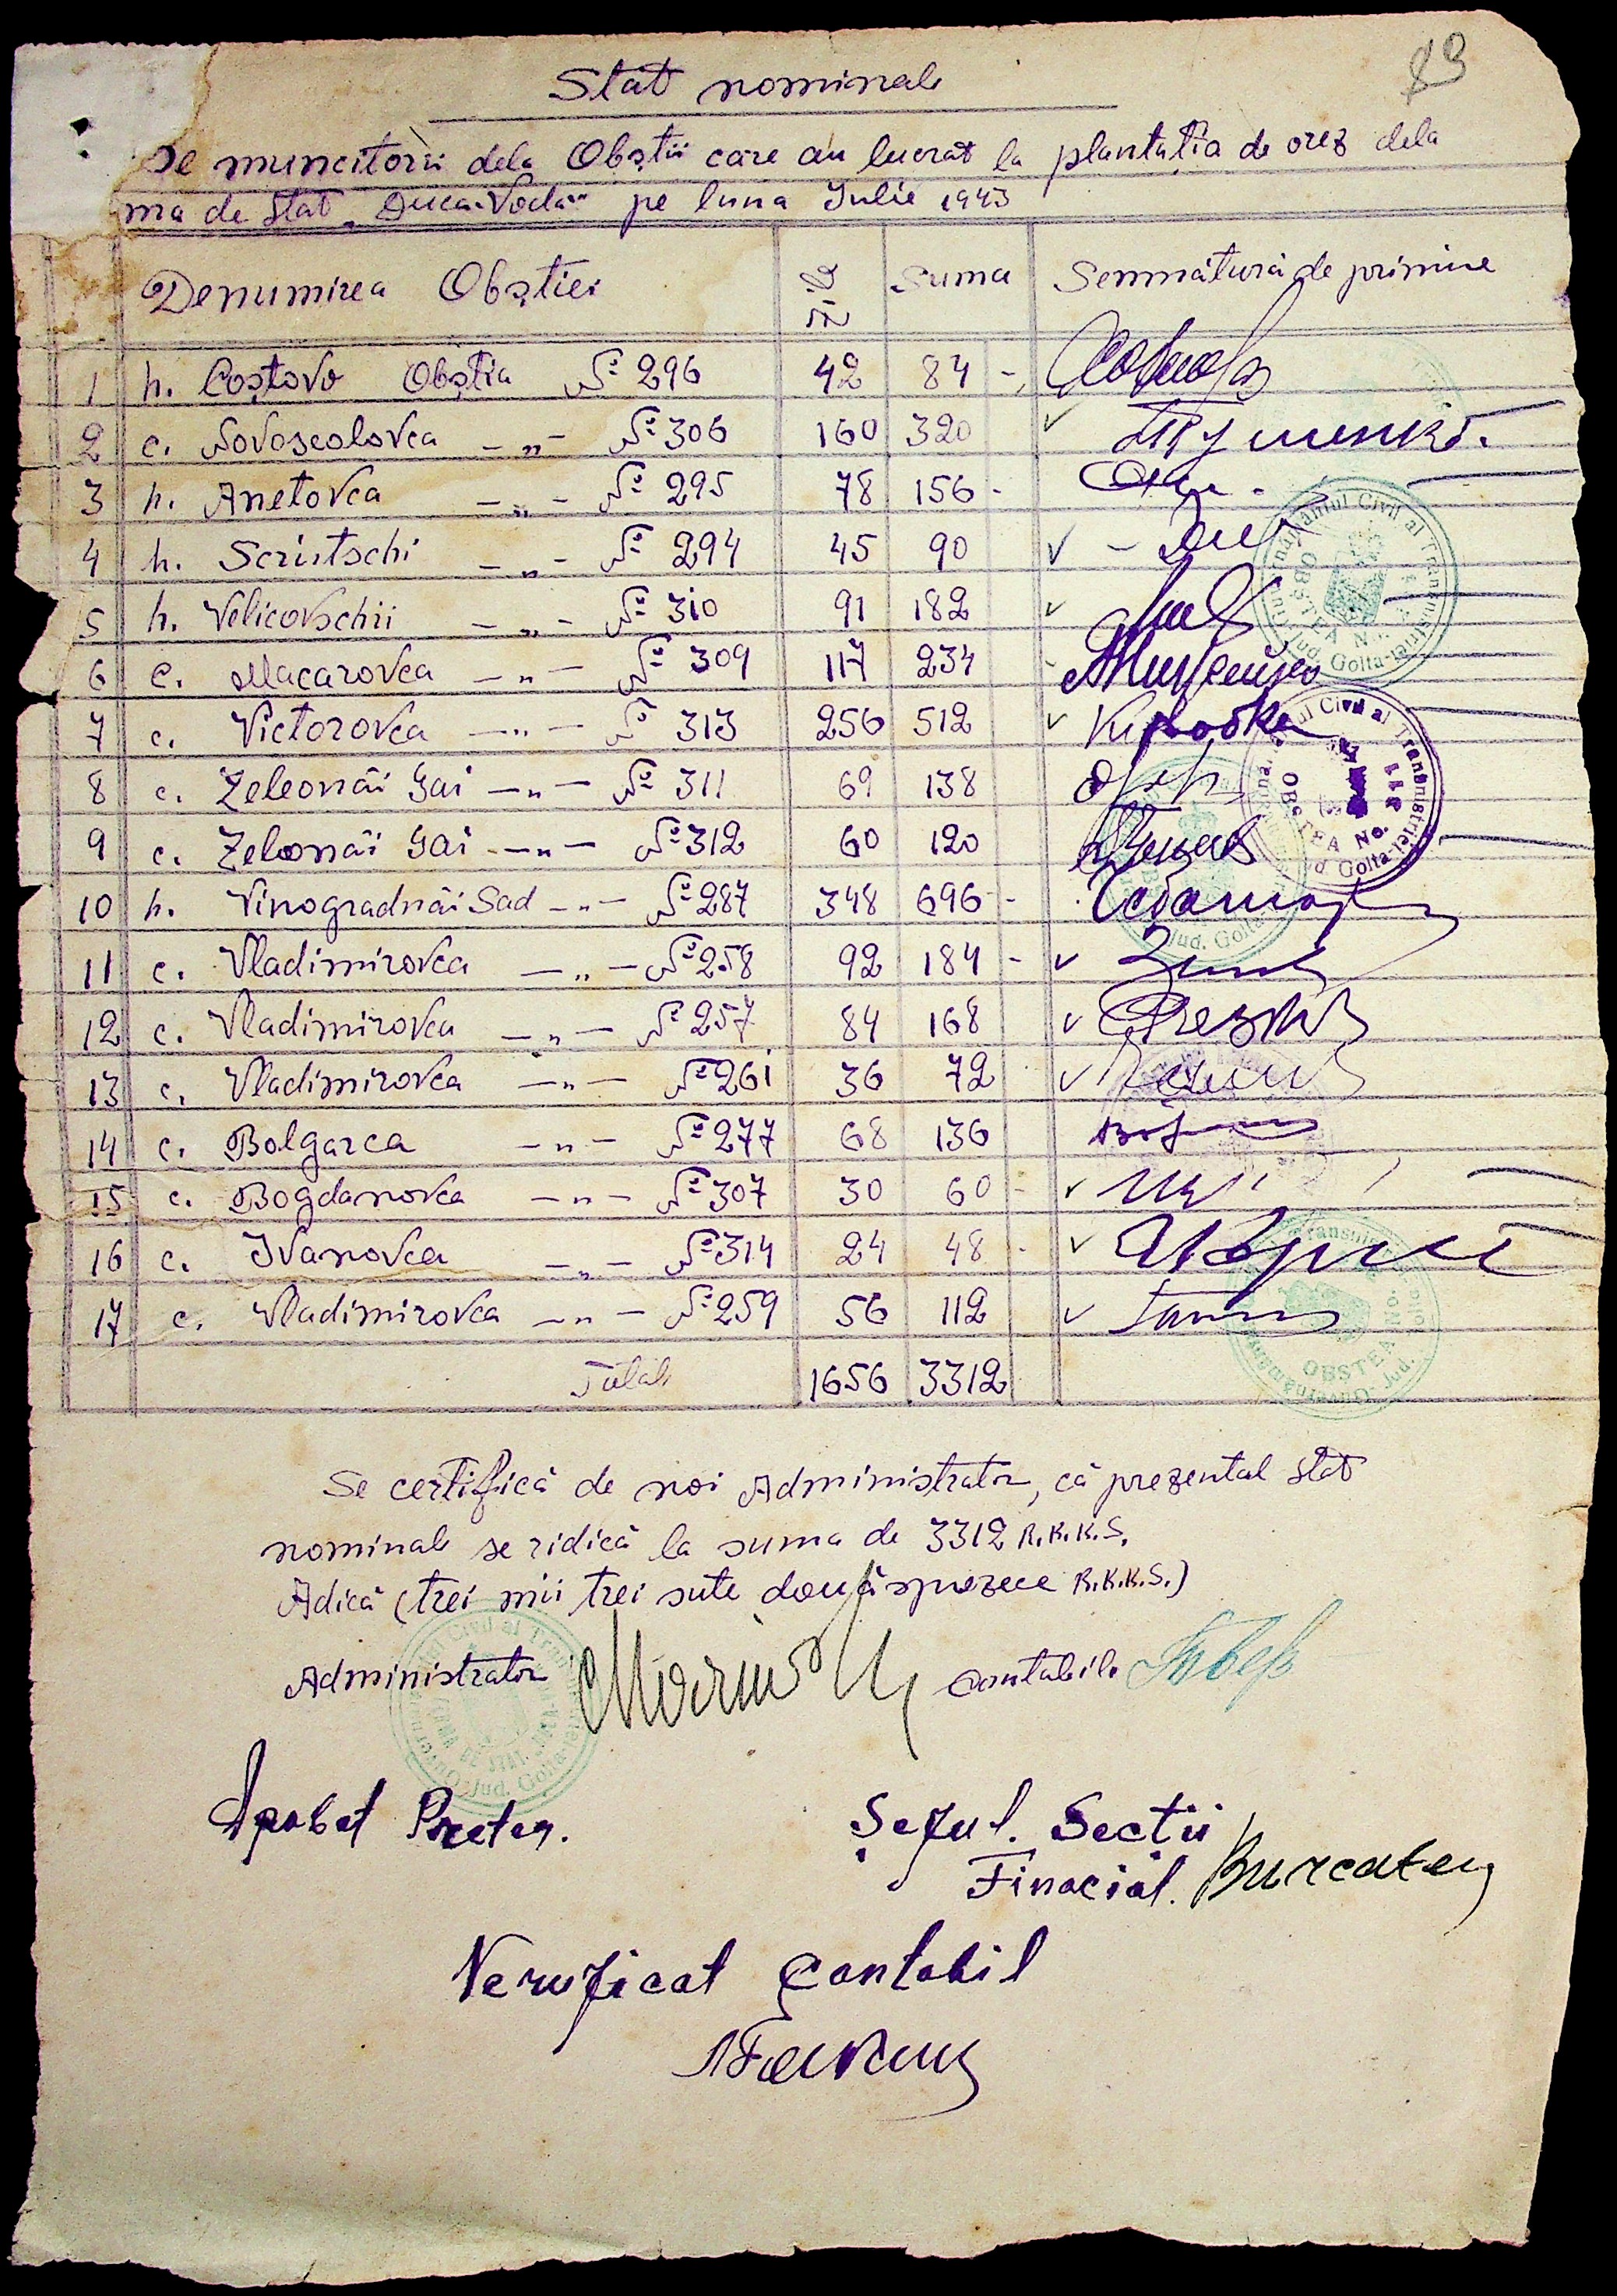 89
Stat nominal
de muncitorii dela Obștii care au lucrat la plantația de orez dela
ma de Stat „Duca-Vodă" pe luna Iulie 1943
Denumirea Obștiei Suma Semnătura de primire
1 h. Coștovo Obștia № 296 42 84 -
2 c. Novoseolovca -„- № 306 160 320 ✓
3 h. Anetovca -„- № 295 78 156 -
4 h. Scriutschi -„- № 294 45 90 ✓
5 h. Velicovschii -„- № 310 91 182 ✓
6 c. Macarovca -„- № 309 117 234
7 c. Victorovca -„- № 313 256 512 ✓
8 c. Zeleonâi Gai -„- № 311 69 138
9 c. Zeleonâi Gai -„- № 312 60 120
10 h. Vinogradnâi Sad -„- № 287 348 696 -
11 c. Vladimirovca -„- № 258 92 184 - ✓
12 c. Vladimirovca -„- № 257 84 168 ✓
13 c. Vladimirovca -„- № 261 36 72 ✓
14 c. Bolgarca -„- № 277 68 136
15 c. Bogdanovca -„- № 307 30 60 - ✓
16 c. Ivanovca -„- № 314 24 48 - ✓
17 c. Vladimirovca -„- № 259 56 112 ✓
Total 1656 3312
Se certifică de noi Administrator, că prezentul stat
nominal se ridică la suma de 3312 R.K.K.S.
Adică (trei mii trei sute douăsprezece R.K.K.S.)
Administrator Contabil
Aprobat Pretor.
Șeful. Secții
Finacial.
Verificat Contabil